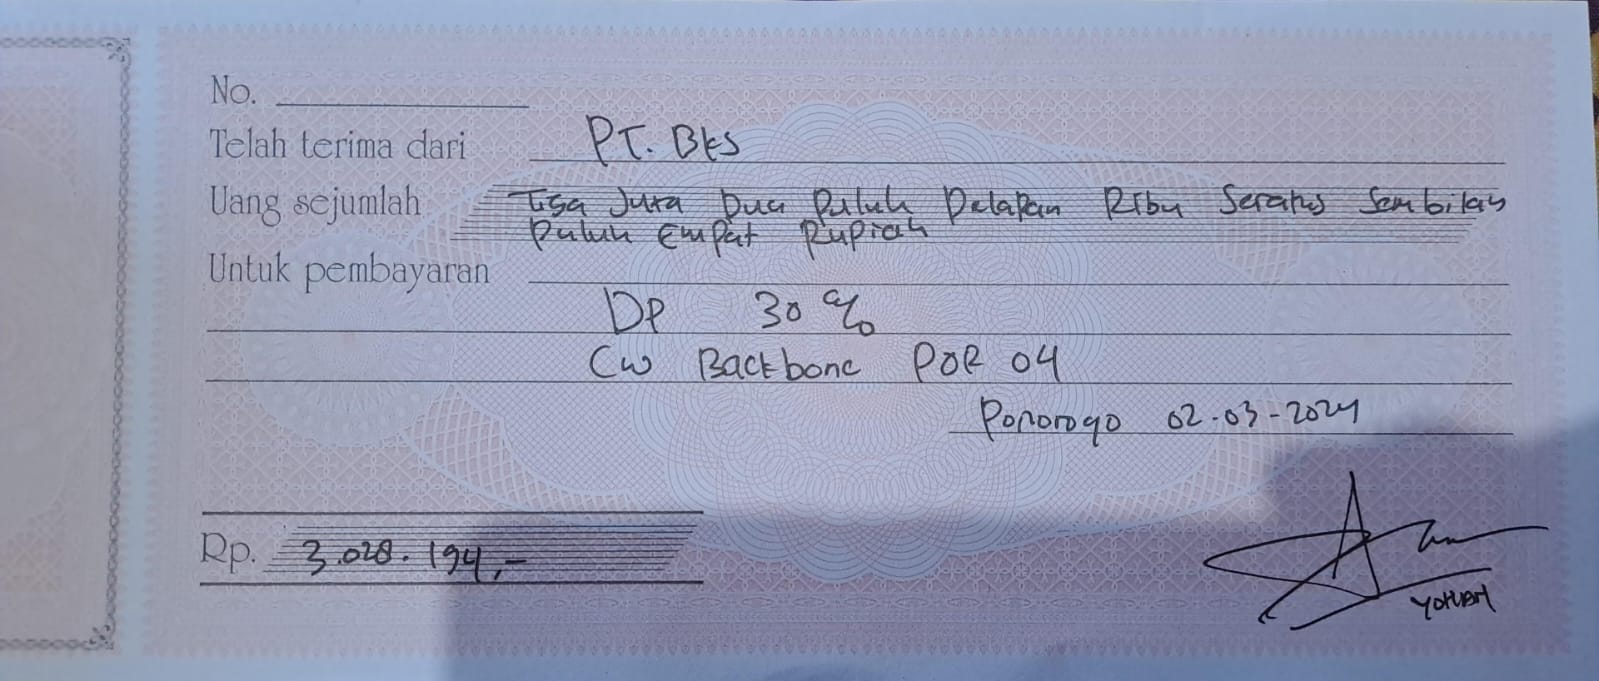 No.
Telah terima dari PT. Bks
Uang sejumlah Tiga Juta Dua Puluh Delapan Ribu Seratus Sembilan
Puluh Empat Rupiah
Untuk pembayaran
DP 30 %
CW Backbone POR 04
Ponorogo 02-03-2024
Rp. 3.028.194,-
YOHAN